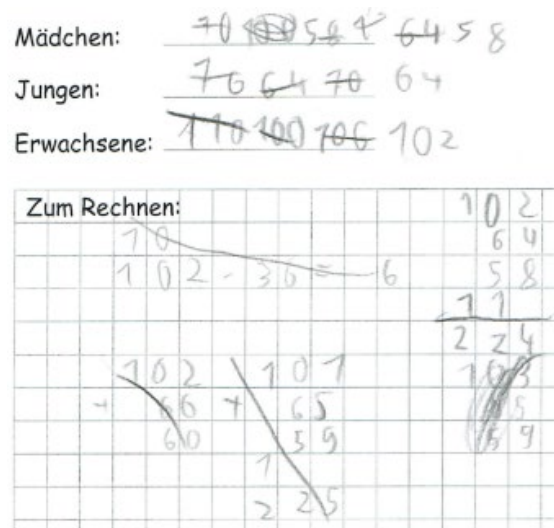 Mädchen: 70 58 64 58
Jungen: 76 64 70 64
Erwachsene: 110 100 106 102
Zum Rechnen:
10
102 - 36 = 6
102
64
58
11
224
102
+ 66
60
101
+ 65
59
1
225
103
59